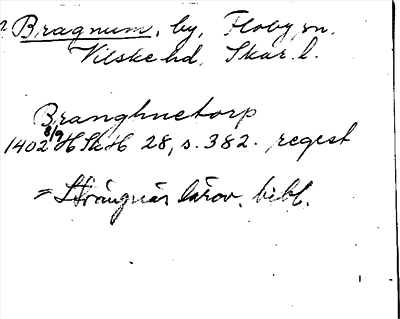 Bragnum, by, Floby sn.
Vilske hd, Skar. l.
Branghnetorp
1402 8/9 HSH 28, s. 382. regest
= Strängnäs lärov. bibl.